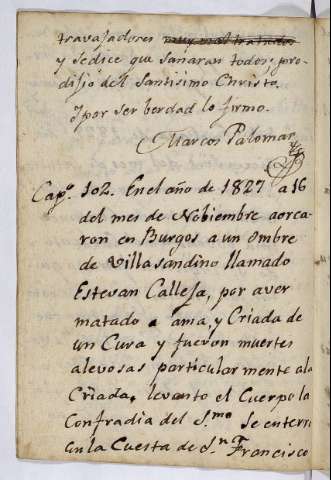 travajadores muy maltratados
y sedice que sanaran todos; pro-
dijio del santisimo Christo.
y por ser berdad lo firmo.
Marcos Palomar
Capº. 102. En el año de 1827 a 16
del mes de Nobiembre aorca-
ron en Burgos a un ombre
de Villasandino llamado
Estevan Calleja, por aver
matado a ama, y Criada de
un Cura y fueron muertes
alevosas particularmente ala
Criada, levanto el Cuerpo la
Confradia del S.mo Se enterro
en la Cuesta de S.n Francisco